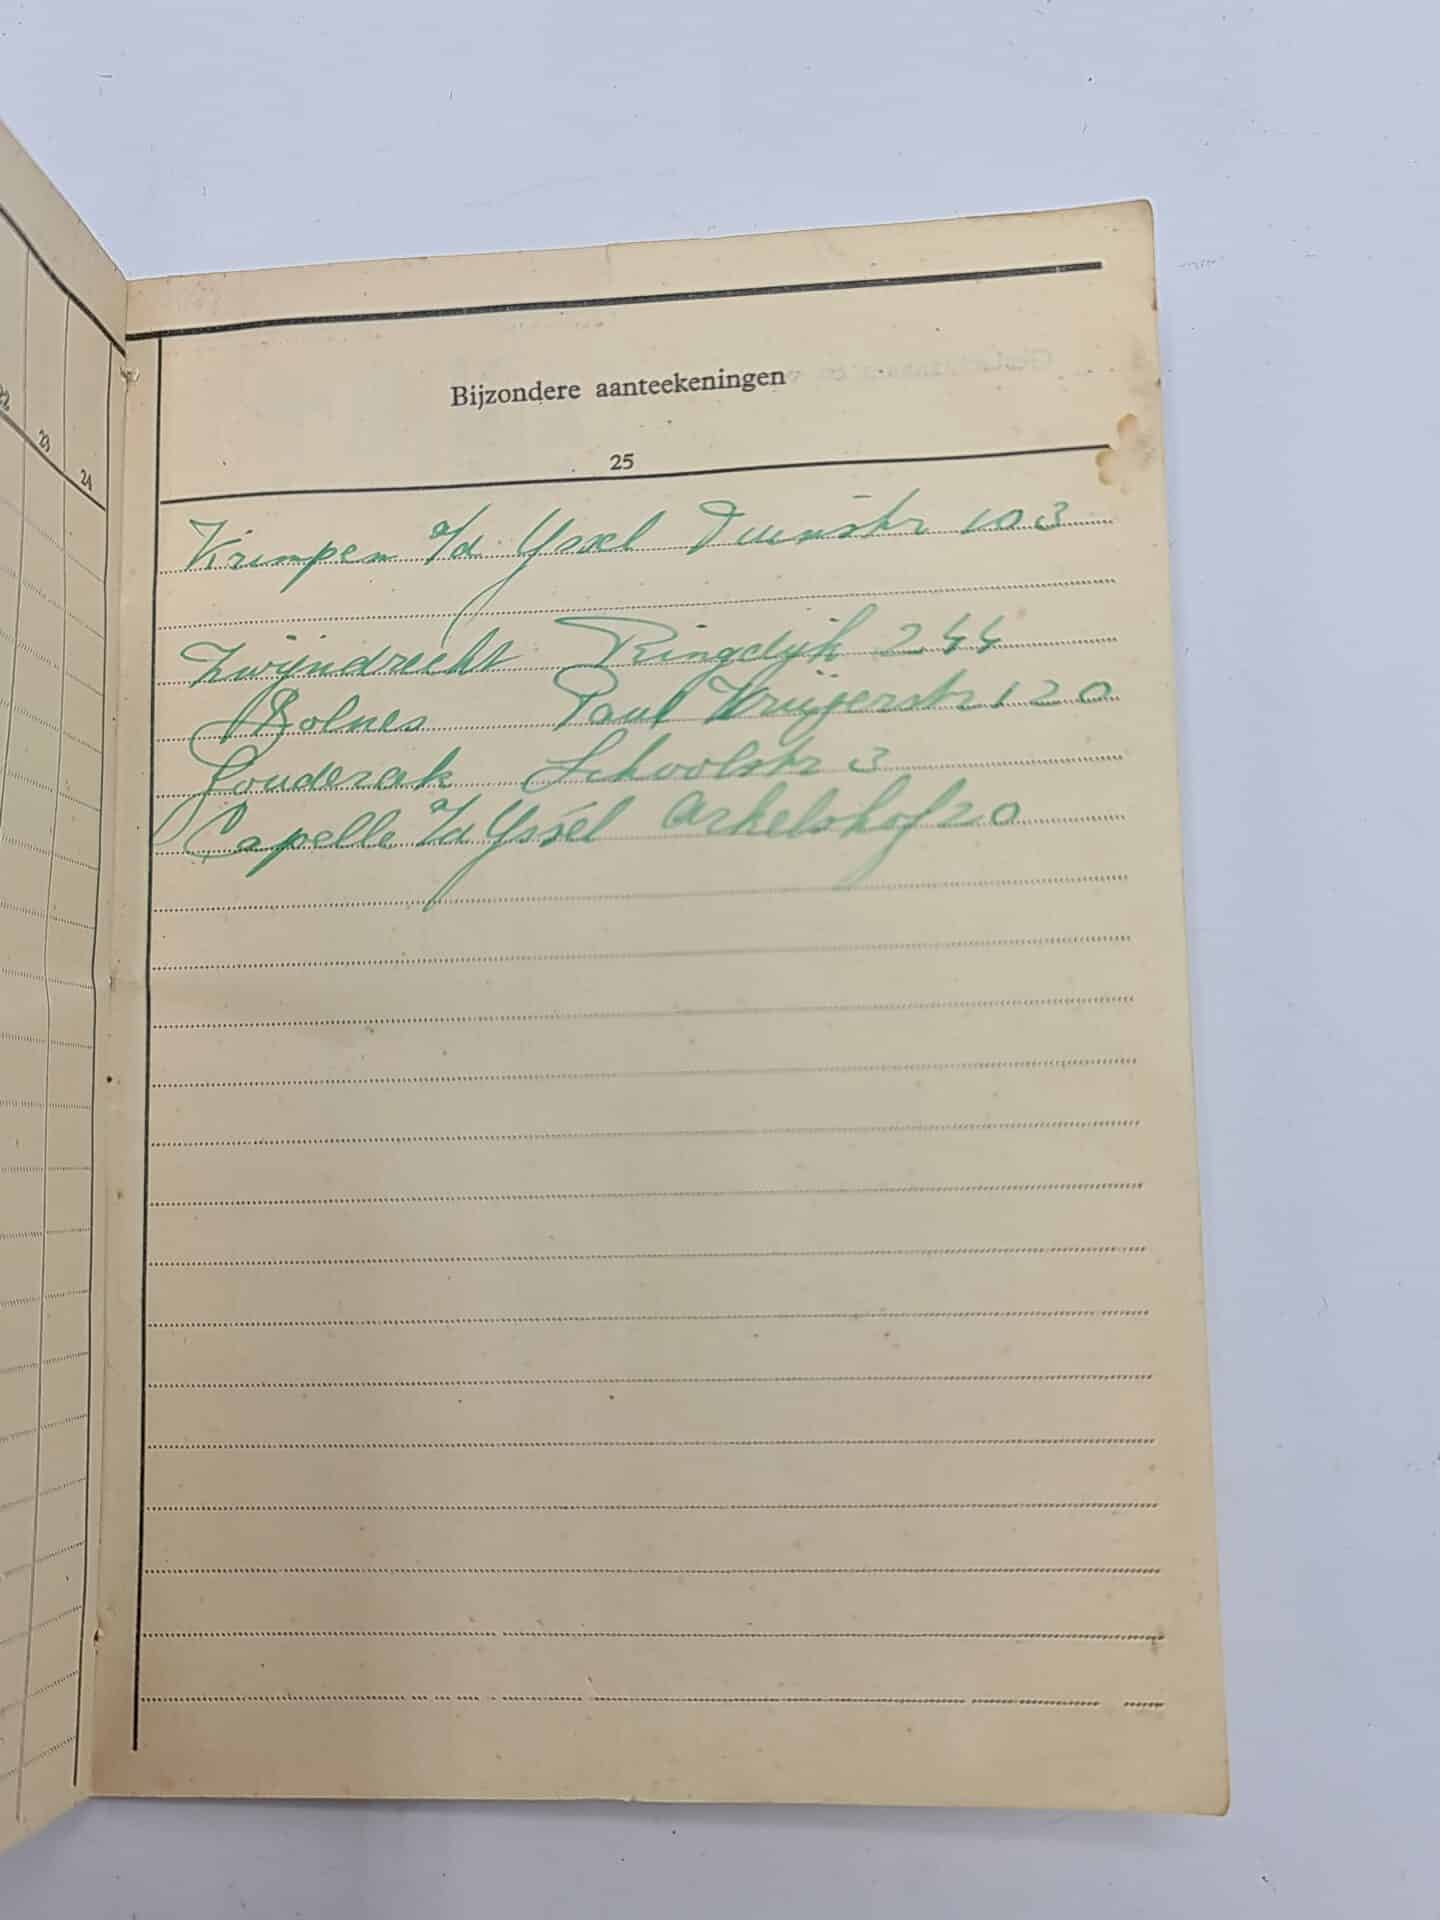 22
23
24
Bijzondere aanteekeningen
25
Krimpen a/d Yssel Tuinstr 103
Zwijndrecht Ringdijk 244
Bolnes Paul Krügerstr 120
Gouderak Schoolstr 3
Capelle a/d Yssel Arkelshof 20